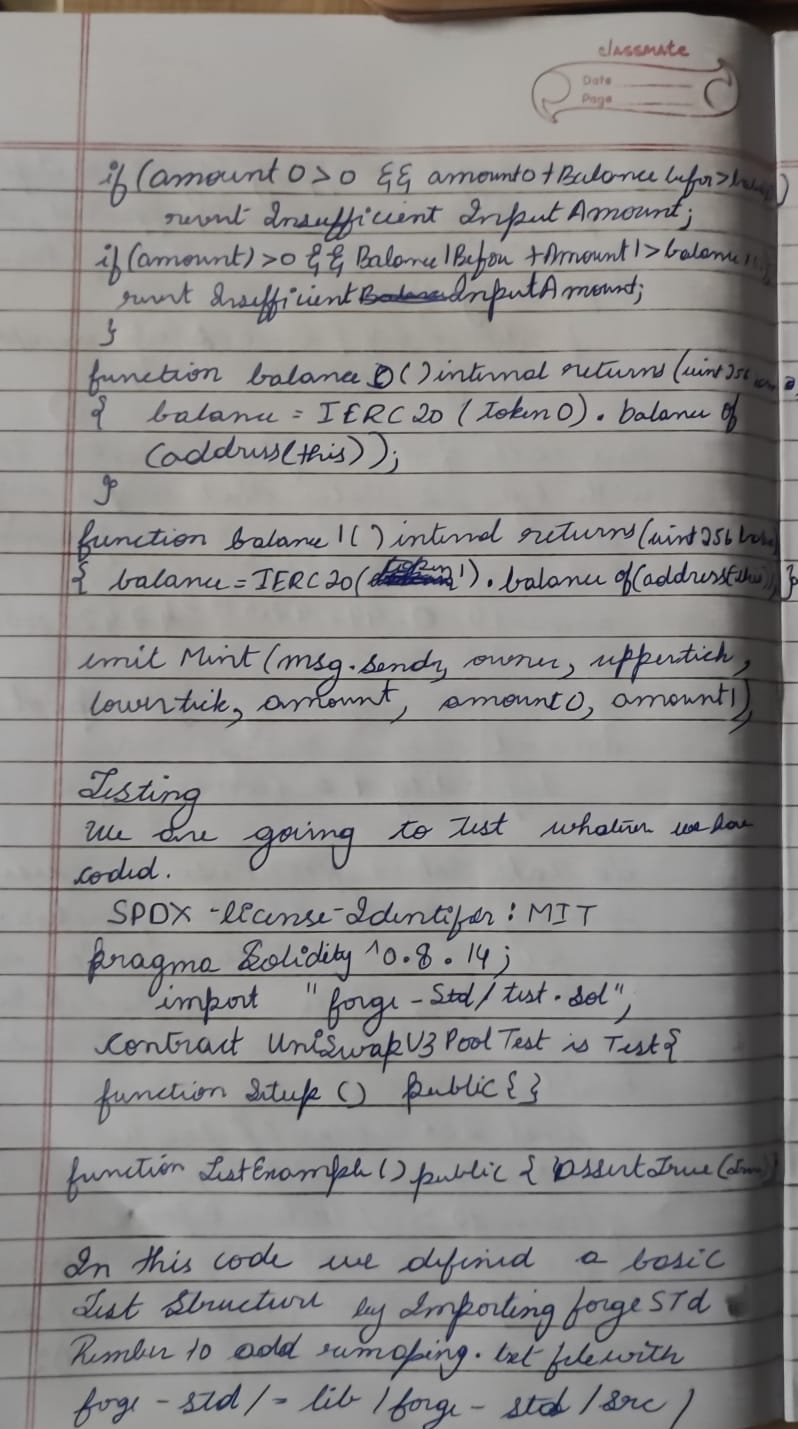 classmate
Date
Page
if (amount 0 > 0 && amount0 + Balance befor >
revert Insufficient Input Amount;
if (amount) > 0 && Balance 1 Before + Amount 1 > balance
revert Insufficient Balance InputAmount;
}
function balance 0 ( ) internal returns (uint 256
{ balance = IERC 20 ( Token 0 ) . balance of
(address(this));
}
function balance 1 ( ) internal returns (uint 256
{ balance = IERC 20 ( token 1 ) . balance of (address(this)); }
emit Mint (msg.sender, owner, uppertick,
lowertick, amount, amount 0, amount 1),
Testing
We are going to Test whatever we have
coded.
SPDX -license-Identifer : MIT
pragma Solidity ^0.8.14;
import "forge-Std/test.sol";
Contract UniSwapV3 Pool Test is Test {
function Setup () public { }
function TestExample () public { AssertTrue (true)
In this code we defined a basic
Test Structure by Importing forge STd
Remember to add remapping. txt file with
foge - std / = lib / forge - std / src /